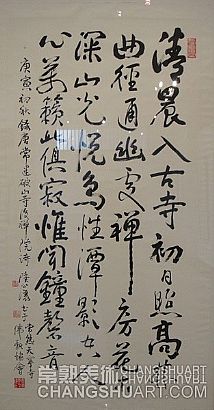 清晨入古寺初日照高林
曲徑通幽處禪房花木
深山光悅鳥性潭影空人
心萬籟此俱寂惟聞鐘磬音
庚寅初秋錄唐常建破山寺後禪院詩
常熟美术网
CHANGSHUART
CHANGSHUART.COM